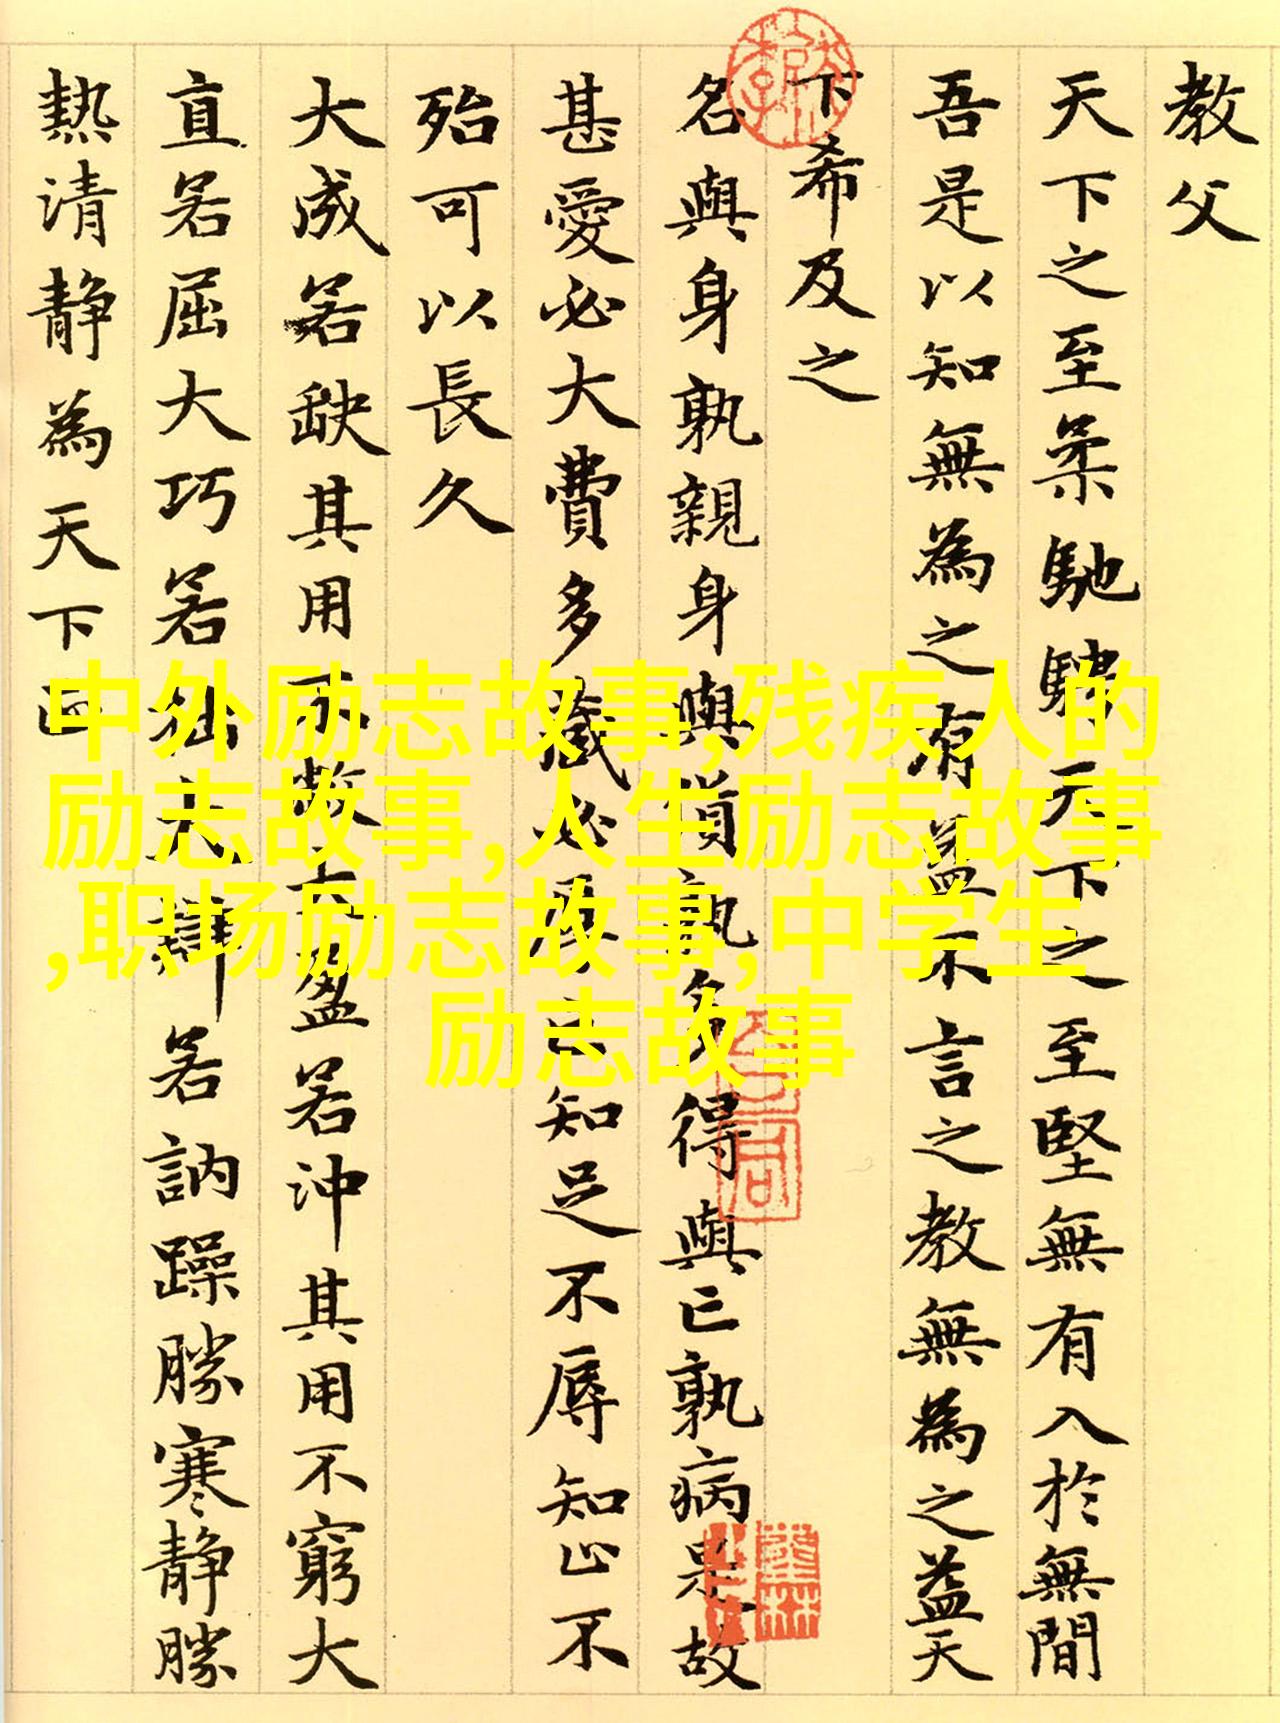 教父
天下之至柔馳騁天下之至堅無有入於無間
吾是以知無為之有益不言之教無為之益天
下希及之
名與身孰親身與貨孰多得與亡孰病是故
甚愛必大費多藏必厚亡知足不辱知止不
殆可以長久
大成若缺其用不敝大盈若沖其用不窮大
直若屈大巧若拙大辯若訥躁勝寒静勝
熱清静為天下正
中外励志故事,残疾人的
励志故事,人生励志故事
,职场励志故事,中学生
励志故事